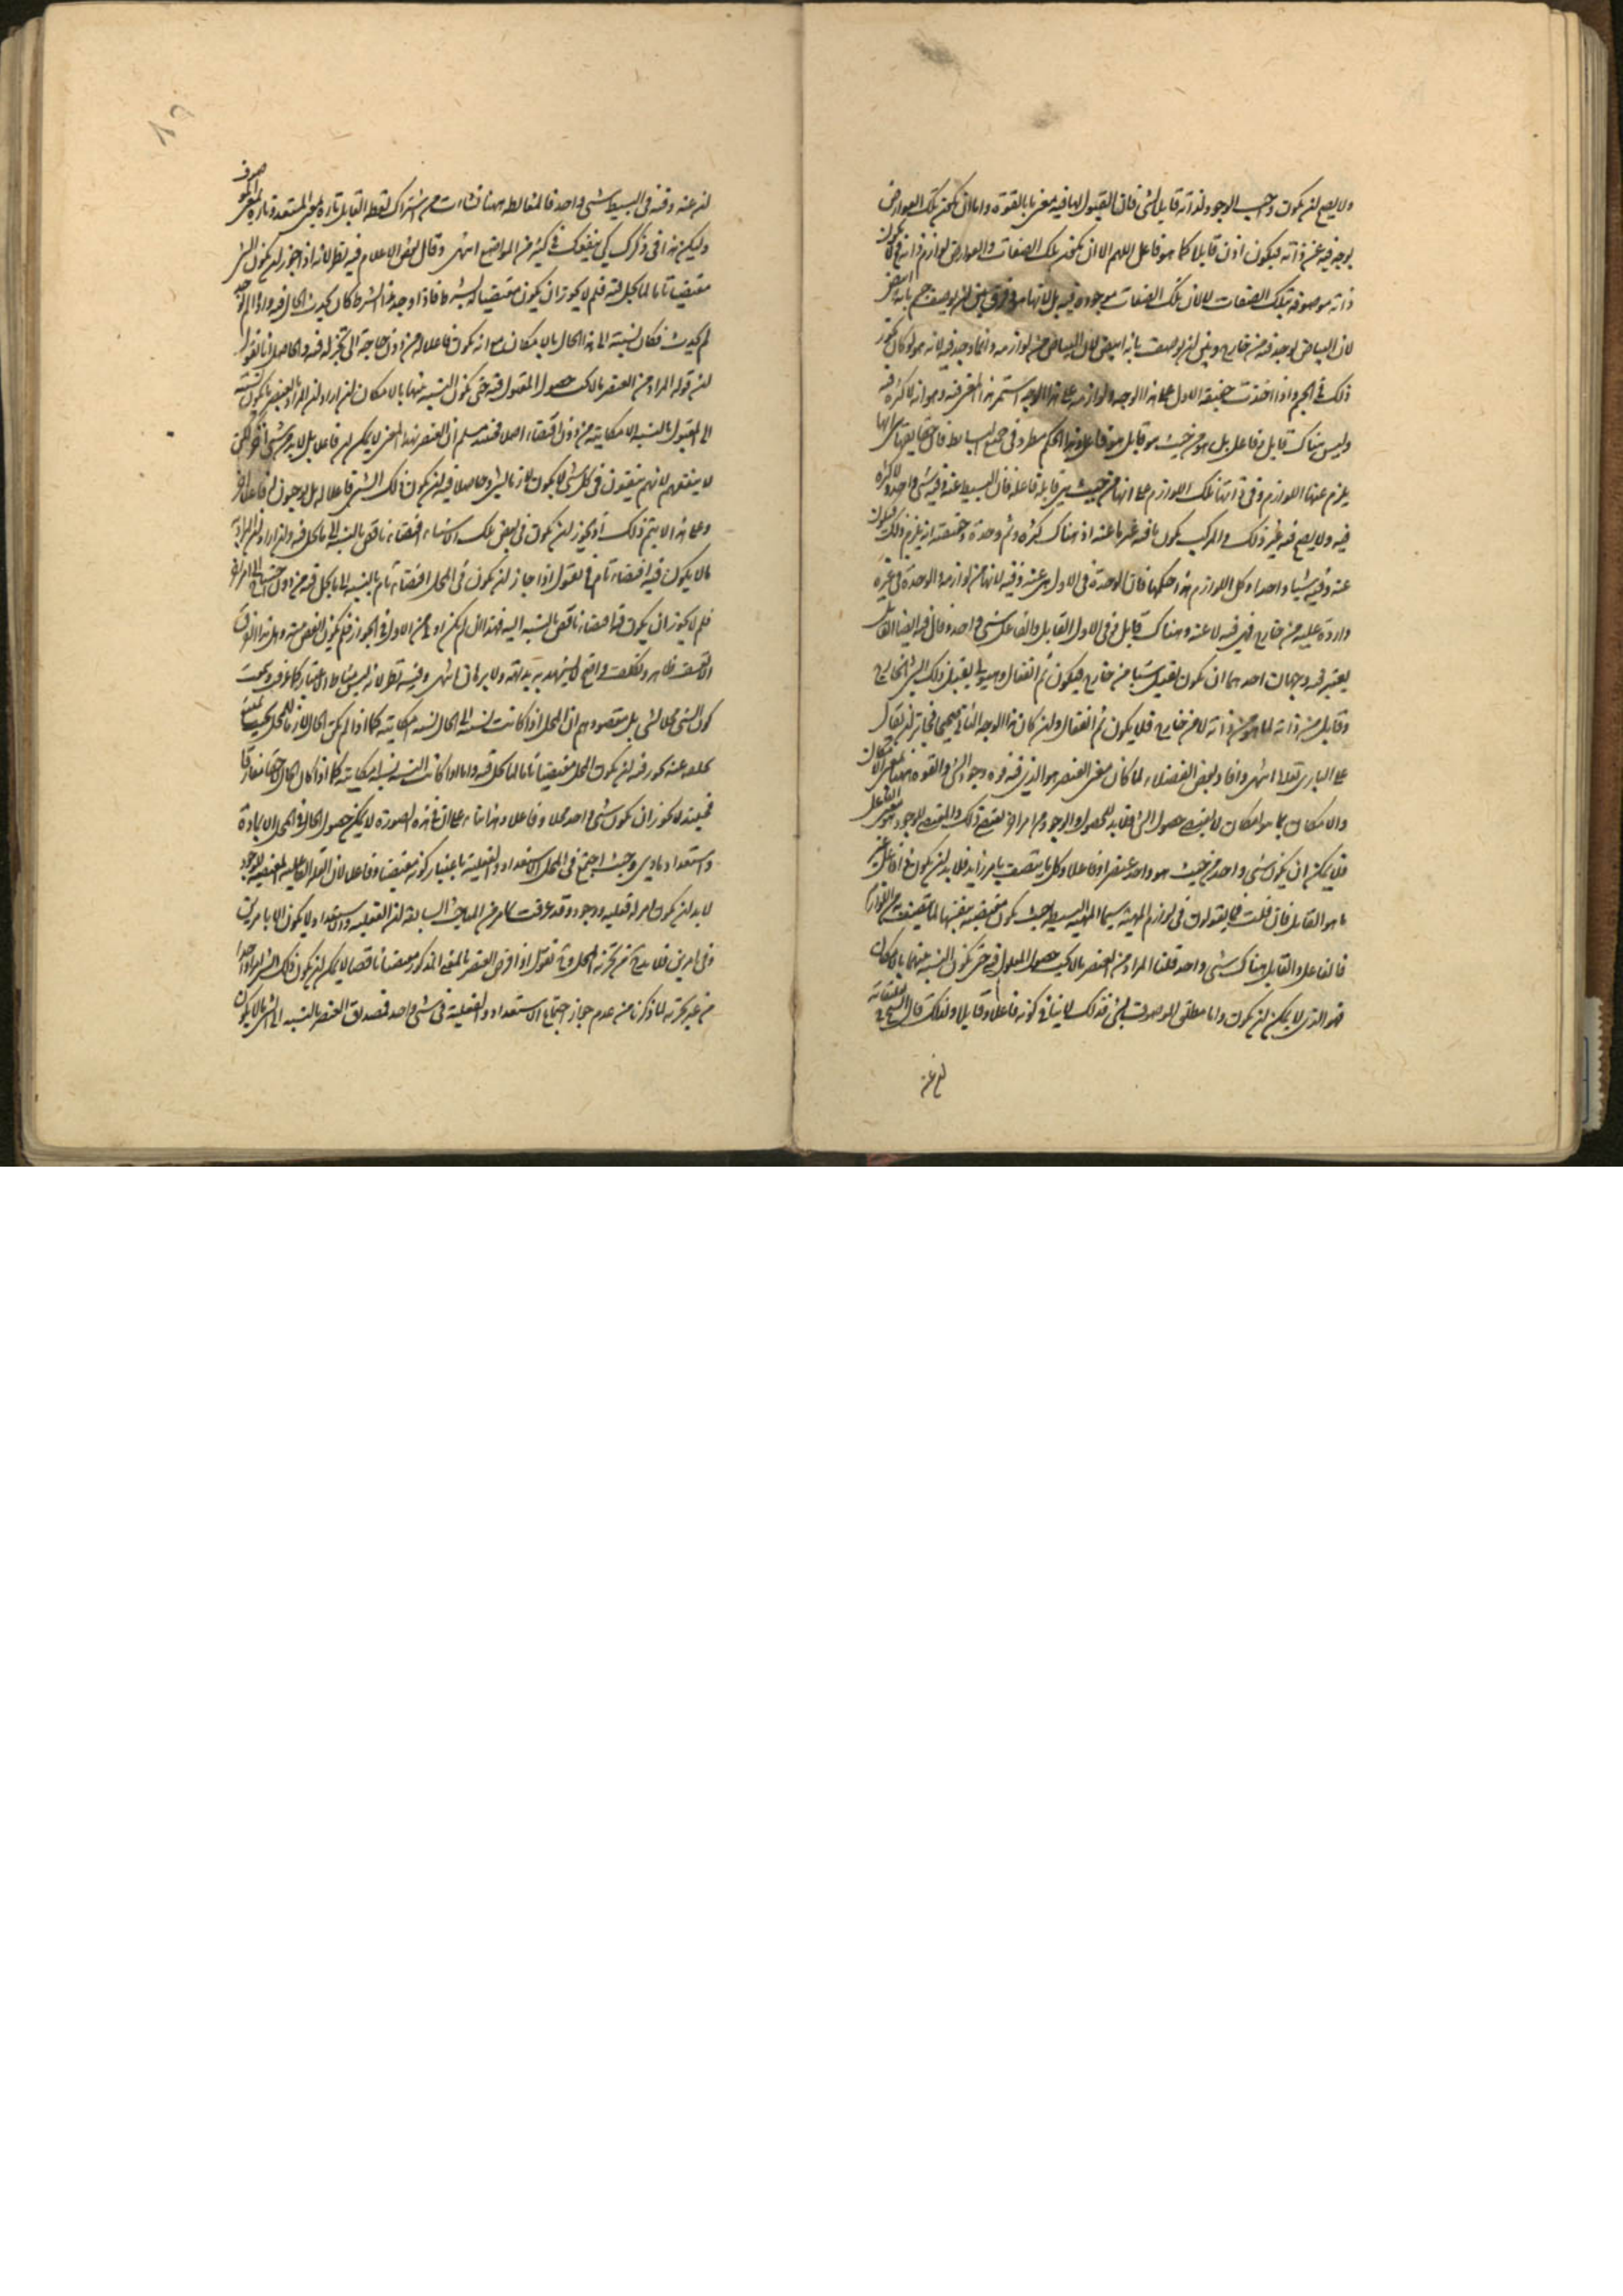 ولا يصح لن يكون واجب الوجود لذاته قابل لشئ فان القبول لما فيه معنى ما بالقوة واما ان يكون تلك العوارض
يوجد فيه عن ذاته فيكون اذن قابلا كما هو فاعل اللهم الا ان يكون تلك الصفات والعوارض لوازم ذاته فح لا يكون
ذاته موصوفة بتلك الصفات لا لان تلك الصفات موجودة فيه بل لانها عنه وفرق بين لن يوصف جسم بانه ابيض
لان البياض يوجد فيه من خارج وبين لن يوصف بانه ابيض لان البياض من لوازمه وانما وجد فيه لانه هو لو كان يجوز
ذلك في الجسم واذا اخذت حقيقة الاول على هذا الوجه ولوازمه على هذا الوجه استمر هذا المعنى فيه وهو انه لا كثرة فيه
وليس هناك قابل وفاعل بل هو من حيث هو قابل هو فاعل وهذا الحكم مطرد في جميع البسايط فان حقايقها هى انها
يلزم عنها اللوازم وفي ذاتها تلك اللوازم على انها من حيث هى قابلة فاعلة فان البسيط عنه وفيه شئ واحد ولا كثرة
فيه ولا يصح فيه غير ذلك والمركب يكون ما فيه غير ما عنه اذ هناك كثرة وثم وحدة وحقيقته انه يلزم ذلك فيكون
عنه وفيه شيئا واحدا وكل اللوازم هذا حكمها فان الوحدة في الاول هى عنه وفيه لانها من لوازمه والوحدة في غيره
واردة عليه من خارج فهى فيه لا عنه وهناك قابل وفي الاول القابل والفاعل شئ واحد وقال فيه ايضا القابل
يعتبر فيه وجهان احدهما ان يكون يقبل شيئا من خارج فيكون ثم انفعال وهيولى يقبل ذلك الشئ الخارج
وقابل من ذاته لما هو من ذاته لا من خارج فلا يكون ثم انفعال ولن كان هذا الوجه الثاني صحيحا فجايز لن يقال
على البارى تعالى انتهى وافاد بعض الفضلاء لما كان معنى العنصر هو الذى فيه قوة وجود الشئ والقوة ههنا بمعنى الامكان
والامكان بما هو امكان لا يقتضى حصول الشئ فلا بد للحصول والوجود من امر اخر يقتضى ذلك والمقتضى للوجود هو معنى الفاعل
فلا يمكن ان يكون شئ واحد من حيث هو واحد عنصرا وفاعلا وكل ما يتصف بامر زايد فلا بد لن يكون فاعل غير
ما هو القابل فان قلت فما يقولون في لوازم المهية سيما المهية البسيطة حيث يكون مقتضية بنفسها لما يتصف به من اللوازم
فالفاعل والقابل هناك شئ واحد قلنا المراد من العنصر ما لا يجب حصول المعلول فيه حتى يكون النسبة بينهما بالامكان
فهو الذى لا يمكن لن يكون واما مطلق الموصوف بشئ فذلك لا ينافي كونه فاعلا وقابلا ولذلك قال الشيخ في تعليقاته
لن عنه
لن عنه وفيه في البسيط شئ واحد فالمغالطة ههنا نشات من اشتراك لفظ القابل تارة بمعنى المستعد وتارة بمعنى الموصوف
وليكن هذا في ذكرك كى ينفعك في كثير من المواضع انتهى وقال بعض الاعلام فيه نظر لانه اذا جوز لن يكون الشئ
مقتضيا تاما لما يحل فيه فلم لا يجوز ان يكون مقتضيا له بشرط فاذا وجد هذا الشرط كان يحدث الحال فيه واذا لم يوجد
لم يحدث فكان نسبته الى هذا الحال بالامكان مع انه يكون فاعلا له من دون حاجة الى تجزئة فيه والحاصل انا نقول
لن قوله المراد من العنصر ما لا يجب حصول المقبول فيه حتى يكون النسبة بينهما بالامكان لن اراد لن المراد بالعنصر ما يكون نسبته
الى المقبول بالنسبة الامكانية من دون اقتضاء اصلا فحينئذ مسلم ان العنصر بهذا المعنى لا يمكن لن فاعلا بل لا بد من شئ اخر لكن
لا ينفعهم لانهم يقولون في كل شئ لا يكون لازما لشئ وحاصلا فيه لن يكون ذلك الشئ فاعلا له بل يوجبون له فاعلا اخر
وعلى هذا لا يتم ذلك اذ يجوز لن يكون في بعض تلك الاشياء اقتضاء ناقص بالنسبة الى ما يحل فيه ولن اراد لن المراد به
ما لا يكون فيه اقتضاء تام فح نقول اذا جاز لن يكون في المحل اقتضاء تام بالنسبة الى ما يحل فيه من دون حاجة الى امر اخر
فلم لا يجوز ان يكون فيه اقتضاء ناقص بالنسبة اليه فهذا لن لم يكن اولى من الاول في الجواز فلم يكون انقص منه وهل هذا الفرق
الا تعسف ظاهر وتكلف واضح لا يشهد به بديهة ولا برهان انتهى وفيه نظر لانه ليس مناط الاعتبار كما عرف وبحث
كون الشئ محلا لشئ بل مقصودهم ان المحل اذا كانت نسبته الى الحال نسبة امكانية كما اذا لم يكن الحال لازما للمحل بحيث يمتنع
تخلفه عنه يجوز فيه لن يكون المحل مقتضيا تاما لما يحل فيه واما اذا كانت النسبة نسبة امكانية كما اذا كان الحال حقا مفارقا
فحينئذ لا يجوز ان يكون شئ واحد محلا وفاعلا وهذا بناء على ان في هذه الصورة لا يمكن حصول الحال في المحل الا بمادة
واستعداد مادى وحيث اجتمع في المحل الاستعداد والفعلية باعتبار كونه مقتضيا وفاعلا لان العلة الفاعلية المقتضية للوجود
لا بد لن يكون امر له فعلية ووجود وقد عرفت مما مر في المباحث السابقة لن الفعلية والاستعداد لا يكون الا بامرين
وفي امرين فلا بد ح من تجزئة المحل وح نقول اذا فرض العنصر بالمعنى المذكور مقتضيا ناقصا لا يمكن لن يكون ذلك الشئ امرا واحدا
من غير تجزئة لما ذكرنا من عدم جواز اجتماع الاستعداد والفعلية في شئ واحد فمصداق العنصر بالنسبة الى شئ لا يكون